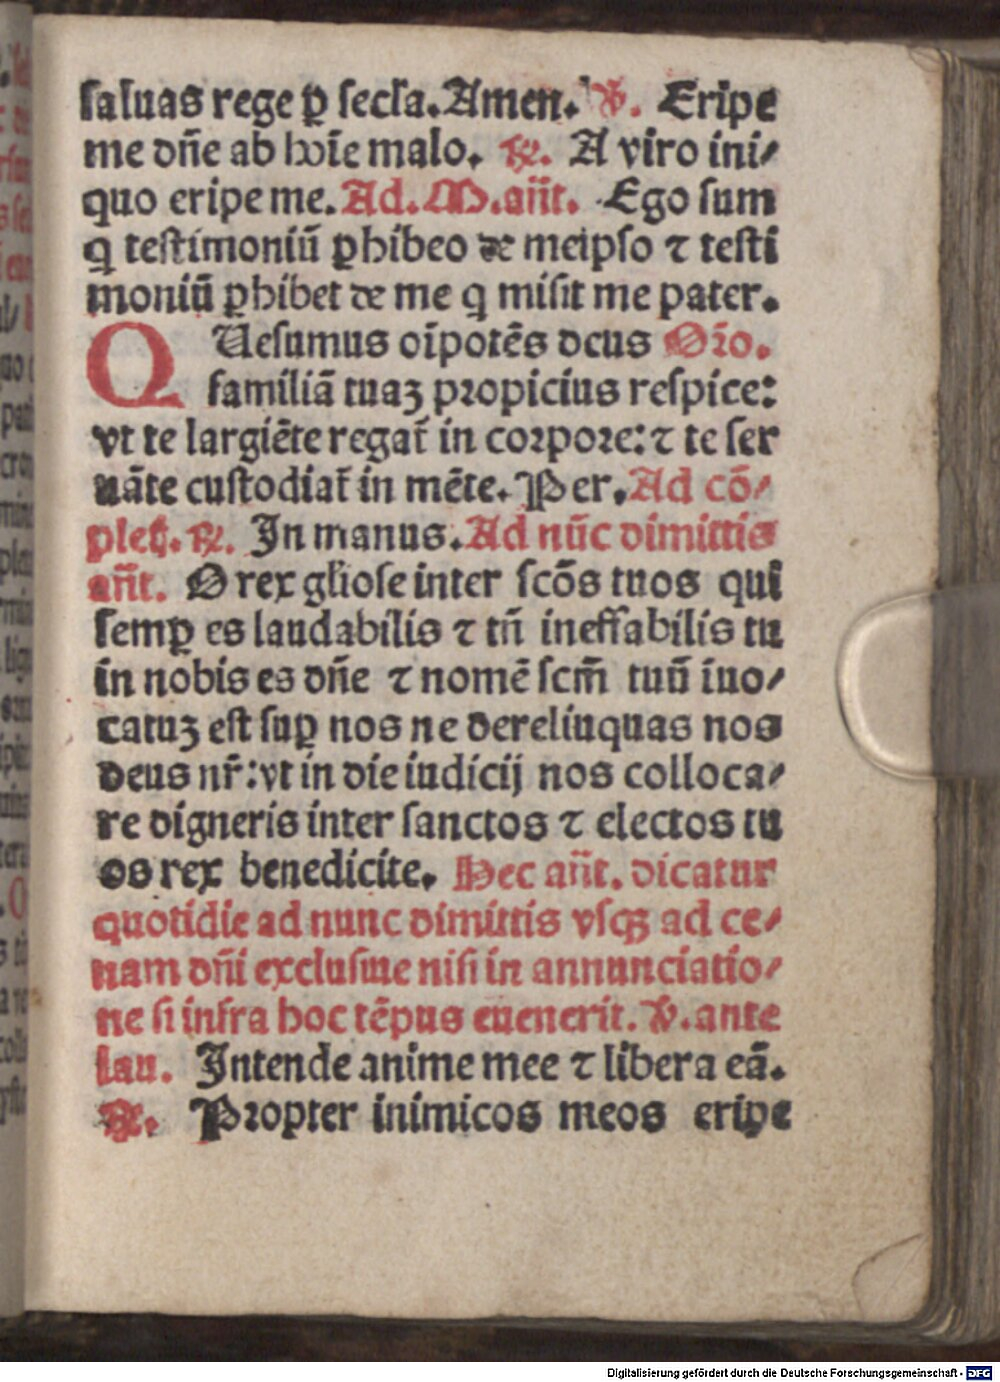 saluas rege ꝑ secła. Amen. ℣. Eripe
me dn̄e ab hoīe malo. ℟. A viro ini⸗
quo eripe me. Ad. M. an̄t. Ego sum
q̇ testimoniū ꝑhibeo de meipso ⁊ testi
moniū ꝑhibet de me q̇ misit me pater.
QUesumus oīpotēs deus Or̄o.
familiā tuaꝫ propicius respice:
vt te largiēte regat̄ in corpore: ⁊ te ser
uāte custodiat̄ in mēte. Per. Ad cō⸗
plet̄. ℟. In manus. Ad nūc dimittis
an̄t. O rex gl̄iose inter scōs tuos qui
semꝑ es laudabilis ⁊ tn̄ ineffabilis tu
in nobis es dn̄e ⁊ nomē scm̄ tuū iuo⸗
catuꝫ est suꝑ nos ne derelinquas nos
deus nr̄: vt in die iudicij nos colloca⸗
re digneris inter sanctos ⁊ electos tu
os rex benedicite. Hec an̄t. dicatur
quotidie ad nunc dimittis vsqꝫ ad ce⸗
nam dn̄i exclusiue nisi in annunciatio⸗
ne si infra hoc tēpus euenerit. ℣. ante
lau. Intende anime mee ⁊ libera eā.
℟. Propter inimicos meos eripe
Digitalisierung gefördert durch die Deutsche Forschungsgemeinschaft - DFG